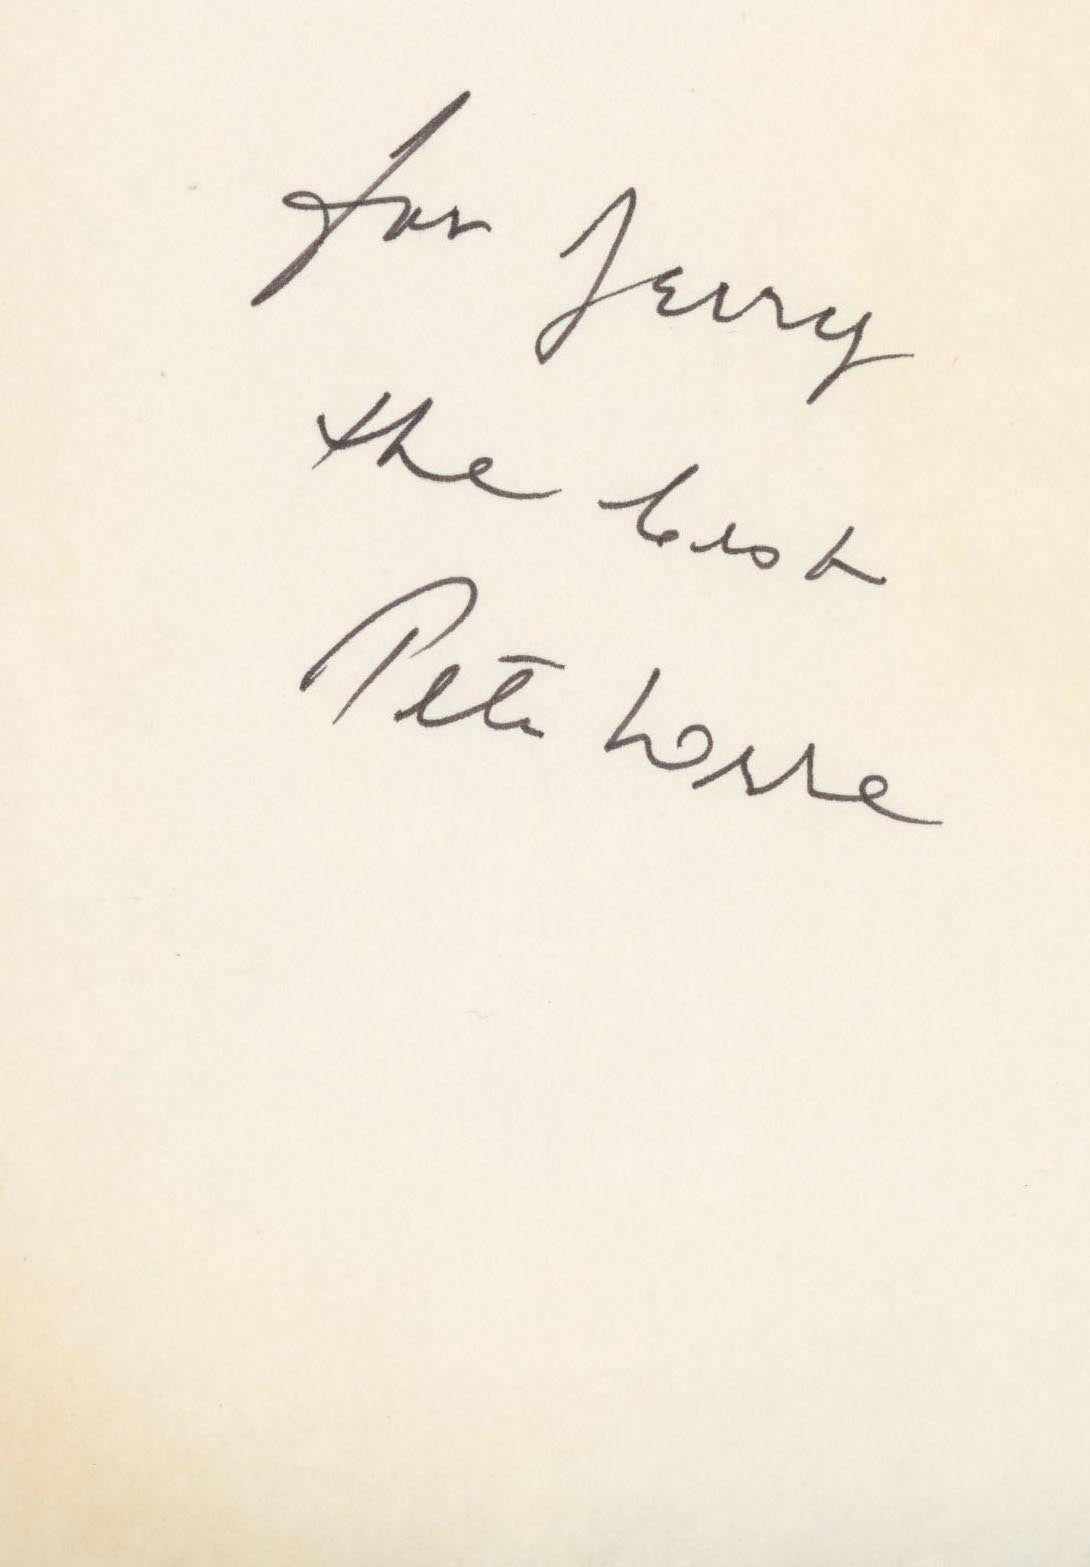 for Jerry
the best
Peter Lorre